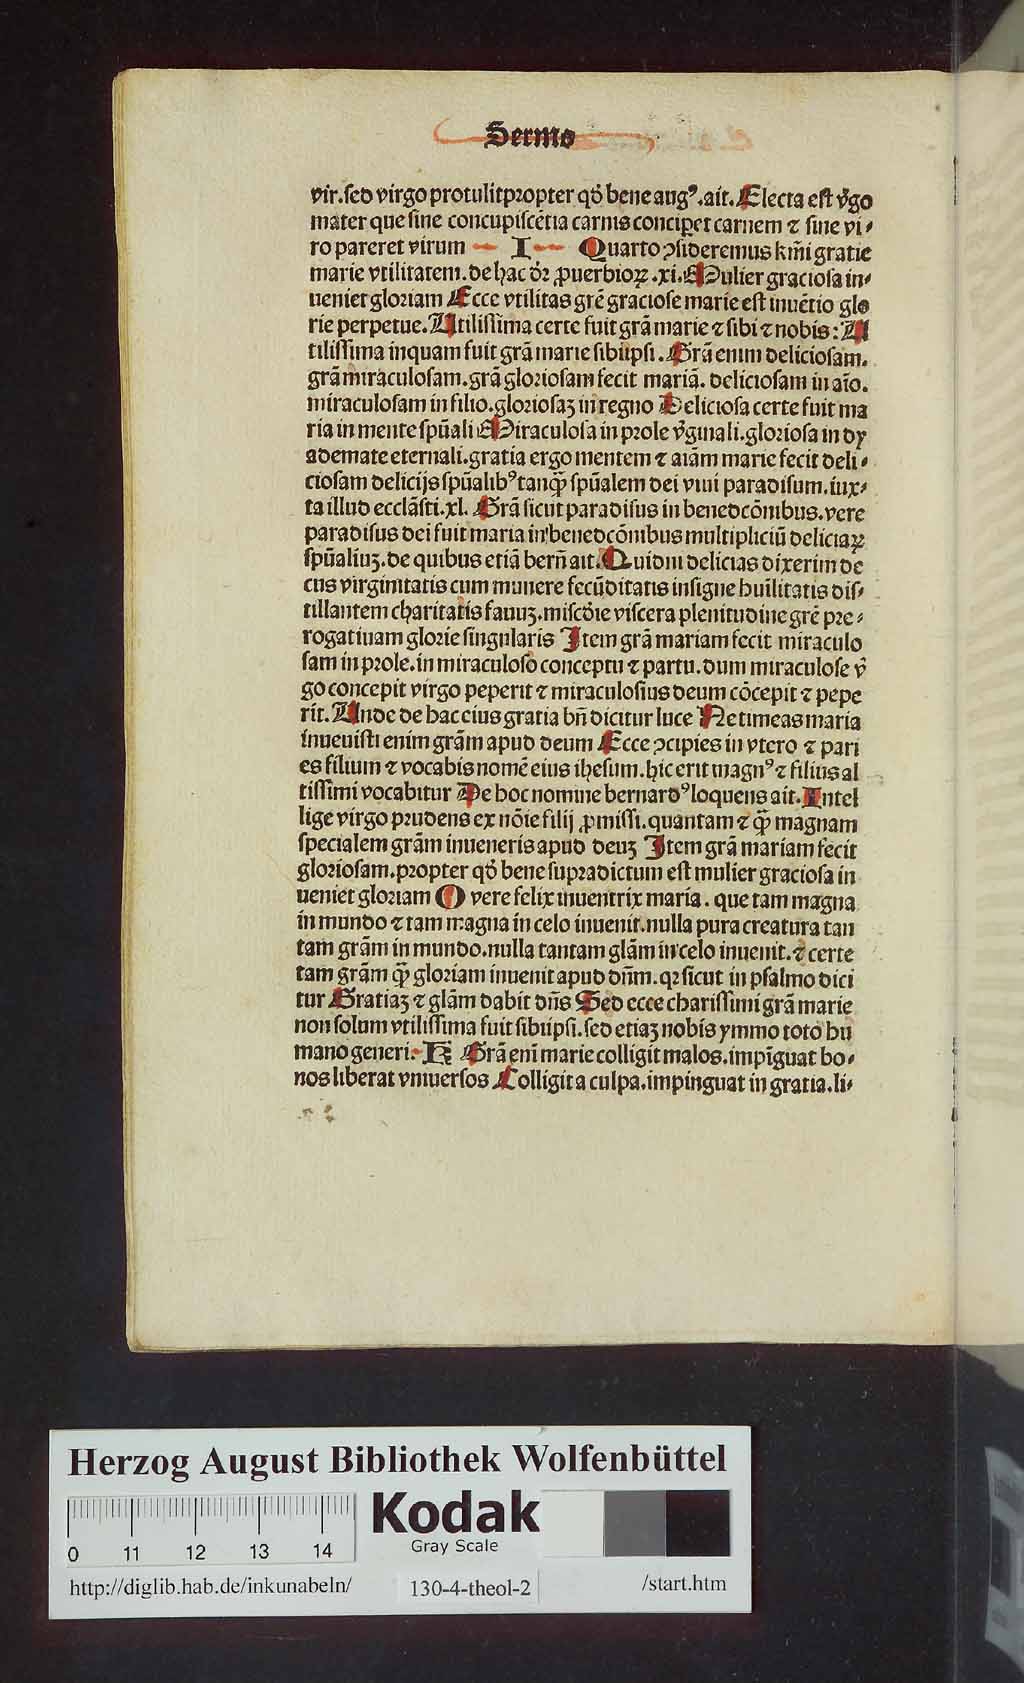 Sermo
vir.sed virgo protulit propter qď bene augꝰ.ait.Electa est v̄go
mater que sine concupiscētia carnis conciperet carnem ⁊ sine vi-
ro pareret virum I Quarto ꝯsideremus km̄i gratie
marie vtilitatem.de hac dr̄ ꝓuerbioꝝ.xi.Mulier graciosa in-
ueniet gloriam Ecce vtilitas grē graciose marie est inuētio glo
rie perpetue.Utilissima certe fuit grā marie ⁊ sibi ⁊ nobis:U
tilissima inquam fuit grā marie sibiipsi.Grā enim deliciosam.
grā miraculosam.grā gloriosam fecit mariā.deliciosam in aīo.
miraculosam in filio.gloriosaꝫ in regno Deliciosa certe fuit ma
ria in mente spūali Miraculosa in prole v̄ginali.gloriosa in dy
ademate eternali.gratia ergo mentem ⁊ aīam marie fecit deli-
ciosam delicijs spūalibꝰ tanqͣ̄ spūalem dei viui paradisum.iux-
ta illud ecclāsti.xl.Grā sicut paradisus in benedcōnibus.vere
paradisus dei fuit maria in benedcōnibus multipliciū deliciaꝝ
spūaliuꝫ.de quibus etiā berñ ait.Quidni delicias dixerim de
cus virginitatis cum munere fecūditatis insigne huīlitatis dis-
tillantem charitatis fauuꝫ.miscďie viscera plenitudine grē pre-
rogatiuam glorie singularis Item grā mariam fecit miraculo
sam in prole.in miraculoso conceptu ⁊ partu.dum miraculose v̄
go concepit virgo peperit ⁊ miraculosius deum cōcepit ⁊ pepe
rit.Unde de hac eius gratia bñ dicitur luce Ne timeas maria
inuenisti enim grām apud deum Ecce ꝯcipies in vtero ⁊ pari
es filium ⁊ vocabis nomē eius ihesum.hic erit magnꝰ ⁊ filius al
tissimi vocabitur De hoc nomine bernardꝰ loquens ait.Intel
lige virgo prudens ex nōie filij ꝓmissi.quantam ⁊ qͣ̄ magnam
specialem grām inueneris apud deuꝫ Item grā mariam fecit
gloriosam.propter qď bene supradictum est mulier graciosa in
ueniet gloriam O vere felix inuentrix maria.que tam magna
in mundo ⁊ tam magna in celo inuenit.nulla pura creatura tan
tam grām in mundo.nulla tantam glām in celo inuenit.⁊ certe
tam grām qͣ̄ gloriam inuenit apud dñm.qꝛ sicut in psalmo dici
tur Gratiaꝫ ⁊ glām dabit dñs Sed ecce charissimi grā marie
non solum vtilissima fuit sibiipsi.sed etiaꝫ nobis ymmo toto hu
mano generi. K Grā enī marie colligit malos.impīguat bo-
nos liberat vniuersos Colligit a culpa.impinguat in gratia.li-
Herzog August Bibliothek Wolfenbüttel
Kodak
Gray Scale
0 11 12 13 14
http://diglib.hab.de/inkunabeln/ 130-4-theol-2 /start.htm